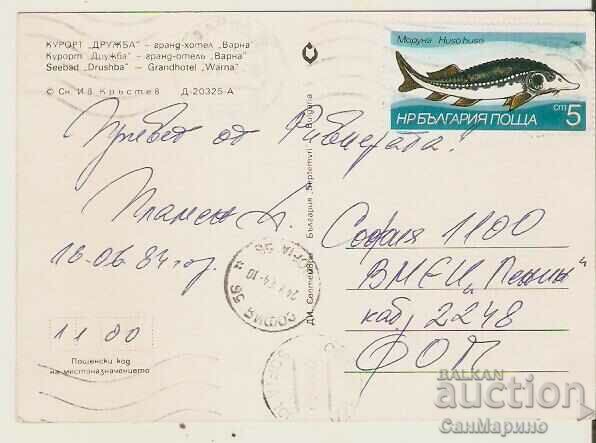 КУРОРТ „ДРУЖБА" – гранд-хотел „Варна"
Курорт „Дружба" – гранд-отель „Варна"
Seebad „Drushba" – Grandhotel "Warna"
© Сн. Ив. Кръстев Д-20325-А
Моруна Huso huso
НР БЪЛГАРИЯ ПОЩА
ст 5
Привет от Ривиерата!
Пламен
16.06.84 год.
София 1100
ВМЕИ „Ленин"
каб. 2248
ФОМ
1100
Пощенски код
на местоназначението
ДИ „Септември" България „Septemvri" – Bulgaria
СОФИЯ 56
BALKAN
auction
СанМарино